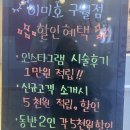 이미호 구월점
할인혜택
인스타그램 시술후기
1만원 적립!!
신규고객 소개시
5천원 적립, 할인
동반2인 각5천원할인